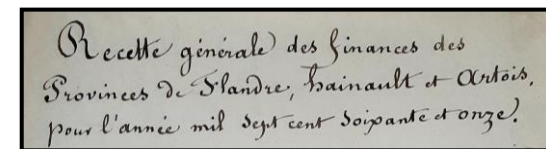 Recette générale des finances des
Provinces de Flandre, hainault et Artois,
pour l'année mil sept cent soixante et onze.